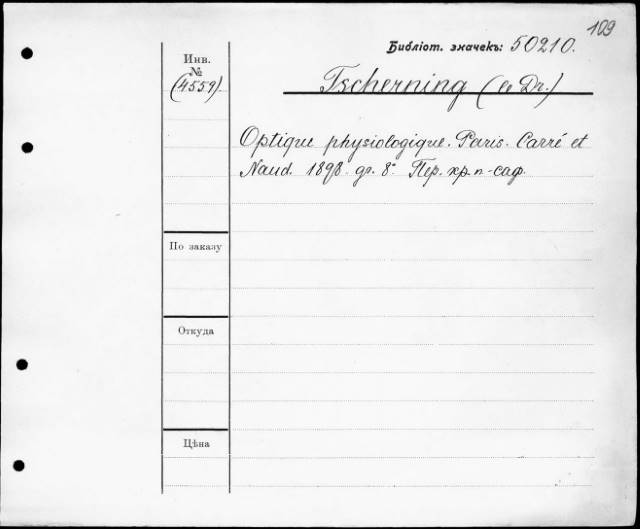 109
Библіот. значекъ: 50210.
Инв.
№
(4559).
Tscherning (le Dr.)
Optique physiologique. Paris. Carré et
Naud. 1898. gr. 8° Пер. хр. п-саф.
По заказу
Откуда
Цѣна